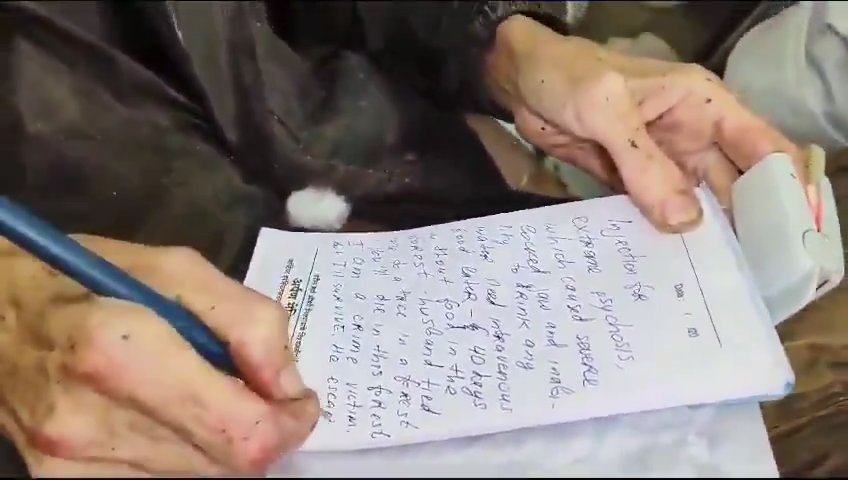 Date / /20
Injection for
extreme psychosis,
which caused severe
Locked jaw and inabi-
lity to drink any
water Need intravenous
food 40 days
without food in the
forest. husband tied
me to a tree in a forest
you'll die in this forest
I am a crime victim.
I'll survive. He escap